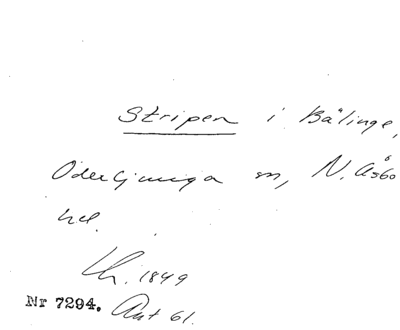 Stripen i Bälinge,
Oderljunga sn, N. Åsbo
hd.
Lh. 1849
Nr 7294. Ant 61.